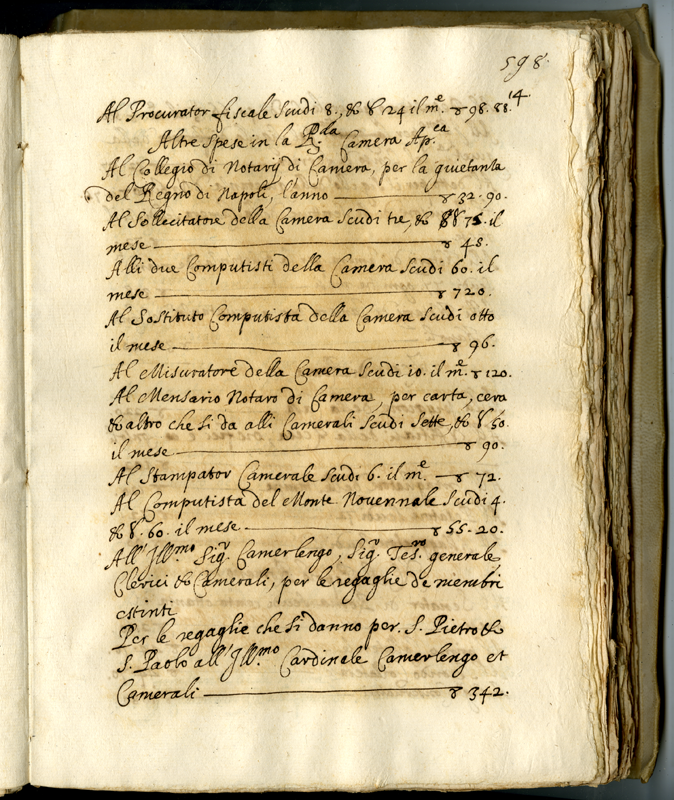 598.
Al Procurator fiscale Scudi 8. & ȣ 24 il m.e ȣ 98. 88. 14
Altre spese in la R.da Camera Ap.ca
Al Collegio di Notarij di Camera, per la quietanza
del Regno di Napoli, l'anno ȣ 32. 90.
Al Sollecitatore della Camera Scudi tre, & 75. il
mese ȣ 48.
Alli due Computisti della Camera Scudi 60. il
mese ȣ 720.
Al Sostituto Computista della Camera Scudi otto
il mese ȣ 96.
Al Misuratore della Camera Scudi 10. il m.e ȣ 120.
Al Mensario Notaro di Camera, per carta, cera
& altro che si da alli Camerali Scudi Sette, & ȣ 50.
il mese ȣ 90.
Al Stampator Camerale Scudi 6. il m.e ȣ 72.
Al Computista del Monte Novennale Scudi 4.
& ȣ. 60. il mese ȣ 55. 20.
All' Ill.mo Sig.r Camerlengo, Sig.r Tes.ro generale
Clerici & Camerali, per le regaglie de membri
estinti
Per le regaglie che si danno per. S. Pietro &
S. Paolo all' Ill.mo Cardinale Camerlengo et
Camerali ȣ 342.